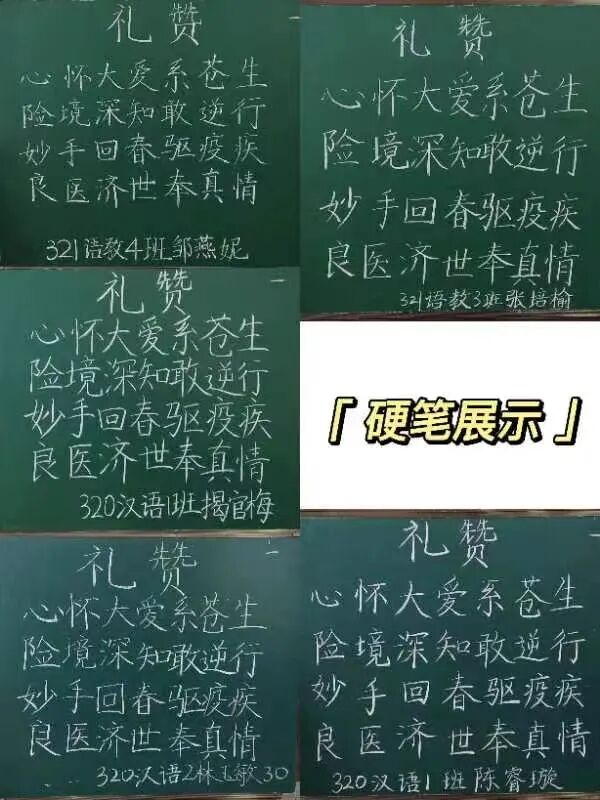 礼赞
心怀大爱系苍生
险境深知敢逆行
妙手回春驱疫疾
良医济世奉真情
321语教4班邹燕妮
礼赞
心怀大爱系苍生
险境深知敢逆行
妙手回春驱疫疾
良医济世奉真情
321语教3班张培榆
礼赞
心怀大爱系苍生
险境深知敢逆行
妙手回春驱疫疾
良医济世奉真情
320汉语1班揭官梅
「硬笔展示」
礼赞
心怀大爱系苍生
险境深知敢逆行
妙手回春驱疫疾
良医济世奉真情
320汉语2林玉敏30
礼赞
心怀大爱系苍生
险境深知敢逆行
妙手回春驱疫疾
良医济世奉真情
320汉语1班陈睿璇